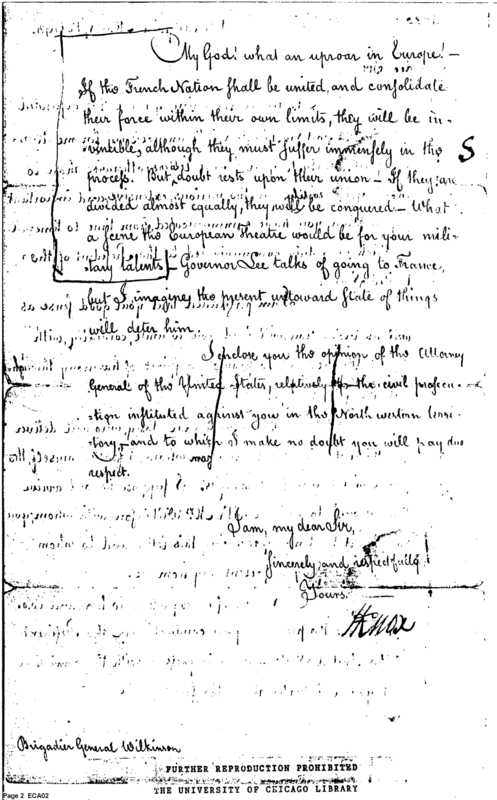 My God! what an uproar in Europe! —
If the French Nation shall be united and consolidate
their force within their own limits, they will be in-
vincible, although they must suffer immensely in the S
process. But doubt rests upon their union — If they are
divided almost equally, they will be conquered — What
a scene the European theatre would be for your mili-
tary talents — Governor Lee talks of going to France,
but I imagine the present untoward State of things
will deter him.
I enclose you the opinion of the Attorney
General of the United States, relatively to the civil prosecu-
tion instituted against you in the North western Terri-
tory, and to which I make no doubt you will pay due
may
respect.
I am, my dear Sir,
Sincerely and respectfully
Yours.
HKnox
Brigadier General Wilkinson
FURTHER REPRODUCTION PROHIBITED
THE UNIVERSITY OF CHICAGO LIBRARY
Page 2 ECA02